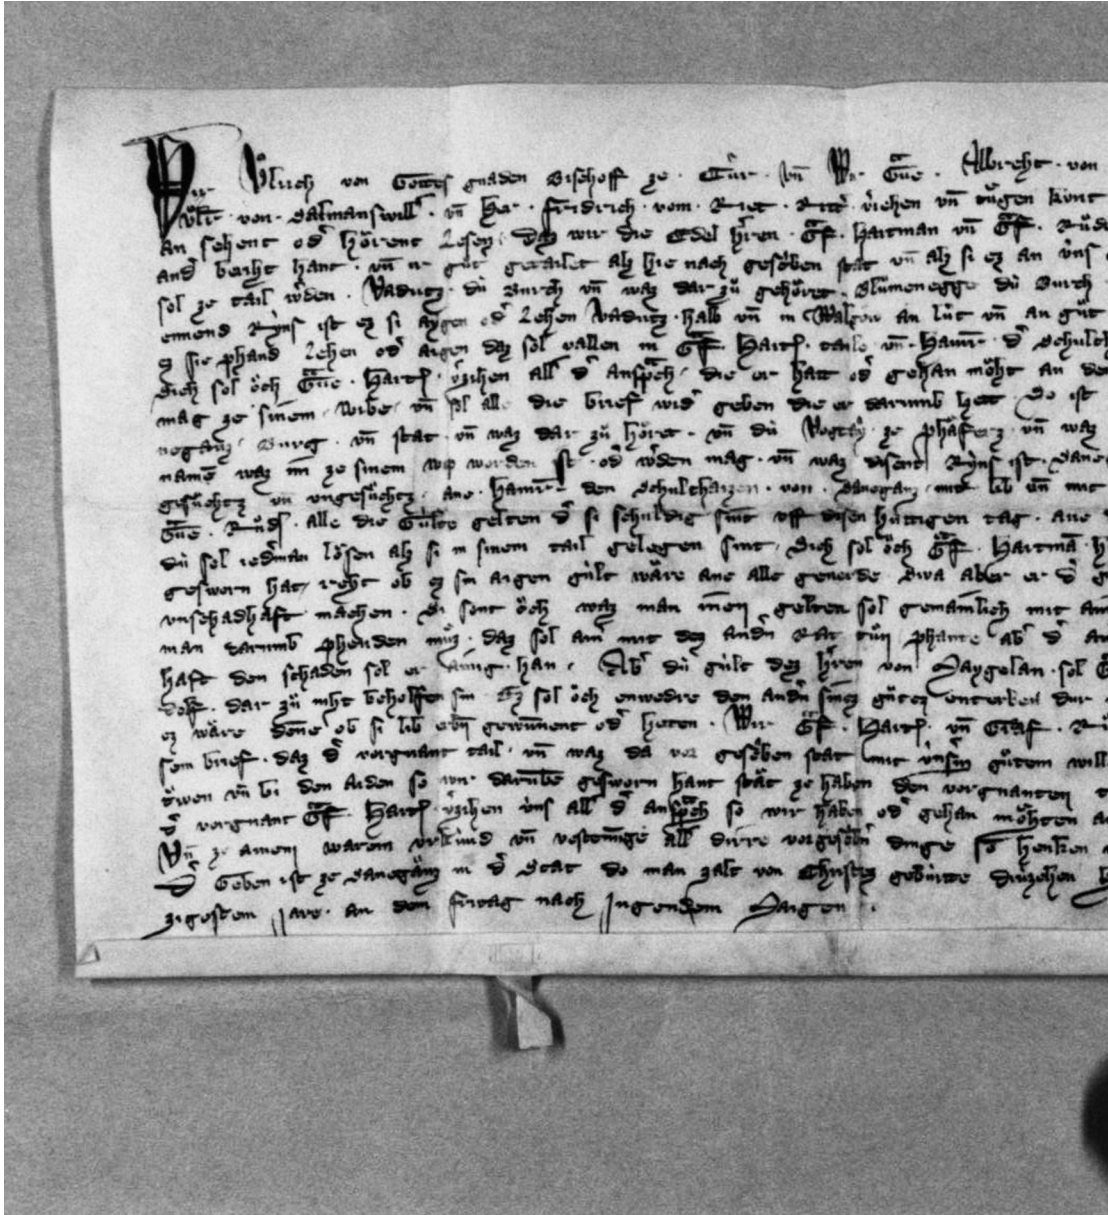 Wir Ůlrich von Gottes gnaden Bischoff ze · Cůr · vn̄ Wir Gͣue · Albreht · von
Ůlr̄ · von · Salmanswill · vn̄ her · Fridrich · vom · Riet · Ritt' · v́iehen vn̄ tůgen kúnt
an sehent od' hörent lesen / daz wir die Edel h'ren · Gͣf · Hartman vn̄ Gͣf · Růd
and' beriht hant · vn̄ ir gůt getailet alz hie nach geschͥben stat vn̄ alz si ez an v́ns
sol ze tail w'den · Vadutz · dú Burch vn̄ waz dar zů gehöret · Blůmenegge dú Burch
ennend Ryns ist ez si aygen od' Lehen Vadutz · halb vn̄ in Walgow an lút vn̄ an gůt
ez sie phand lehen od' aigen daz sol vallen in Gͣf · Hart · taile vn̄ · Hainr̄ · d' Schulth
Dich sol öch Gͣue · Hart · v'zihen all d' anspͣch / die er hatt od' gehan möht an de
mag ze sinem · wibe / vn̄ sol alle die brief wid' geben die er darumb hett Do ist
negantz · Burg · vn̄ stat · vn̄ waz dar zů höret · vn̄ dú Vogtay · ze phäferz · vn̄ waz
namē waz im ze sinem wip worden ist · od' w'den mag · vn̄ waz disent Ryns ist · Sane
gesůchtz vn̄ vngesůchtz · ane · Hainr̄ · den Schulthaizen · von · Sanegans · mit lib vn̄ mit
Gͣue · Růd · alle die Gúlte gelten d' si schuldig sint vff disen húttigen tag · ane
dú sol iederman lösen alz si in sinem tail gelegen sint · Dich sol öch Gͣf · Hartmā · h
gesworn hat / reht ob ez sin aigen gúlt wäre ane alle geuerde Swa aber er d' g
vnschadhaft machen · Si sont öch waz man inen gelten sol gemainlich mit an
man darumb phenden můz · daz sol ain' mit dez and'n Rat tůn phante ab' d' an
haft den schaden sol er ainig · han · Ab' dú gúlt dez h'ren von Maygelan · sol G
dekk · dar zů niht beholffen sin Ez sol öch entwedre den and'n sines gůtez enterben dur
ez wäre denne ob si lib erbn gewunnent od' heten · Wir Gͣf · Hart · vn̄ Graf · R
sem brief · daz d' vorgnant tail · vn̄ waz da vor geschͥben stat mit v́nserm gůtem will
trúwen vn̄ bi den aiden so wir darumbe gesworn hant stät ze haben den vorgnanten t
d' vorgnant Gͣf · Hart · v'zihen v́ns all d' anspͣch so wir haben od' gehan möhten a
Vn̄ ze ainem warem vrkúnd vn̄ vestenunge all dirre vorgeschͥbn dinge so henken
D' Geben ist ze Sanegans in d' Stat do man zalt von Christez gebúrte drúzehen h
zigestem Jare · an dem fritag nach Ingendem Maigen ·